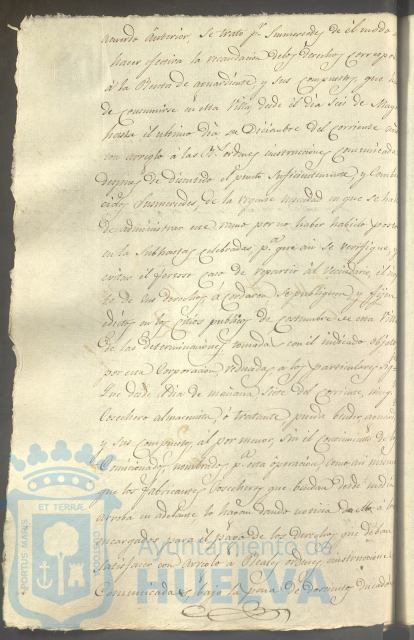 acuerdo anterior, se trato pr. Sumercedes de el modo de
hacer efectiva la recaudacion de los derechos correspon
á la Renta de aguardiente y sus compuestos, que
de consumirse en esta Villa, desde el dia seis de Mayo
hasta el ultimo dia de Diciembre del corriente año
con arreglo á las Rs. ordenes instrucciones comunicadas
despues de discutido el punto suficientemente, y
Sumercedes, de la urgente necesidad en que se ha
de administrar este ramo por no haber habido postor
en las Subhastas celebradas, pa. que asi se verifique, y
evitar el forzoso caso de repartir al vecindario, el
de sus derechos, acordaron, se publiquen y fijen
edictos en los sitios publicos de costumbre de esta Villa
de las determinaciones tomadas con el indicado objeto
por esta Corporacion, reducidas a los particulares
Que desde el dia de mañana siete del corriente, ningun
Cosechero almacenista ó tratante pueda vender
y sus compuestos al por menor, sin el conocimiento de
Comisionados nombrados pa. esta operacion, como asi mismo
que los fabricantes, Cosecheros que vendan desde media
arroba en adelante lo haran dando noticia de ello á los
encargados para el pago de los derechos que deban
satisfacer con arreglo a Reales ordenes, instrucciones
Comunicadas bajo la pena de doscientos ducados
PORTUS MARIS
ET TERRÆ
CUSTODIA
Ayuntamiento de
HUELVA